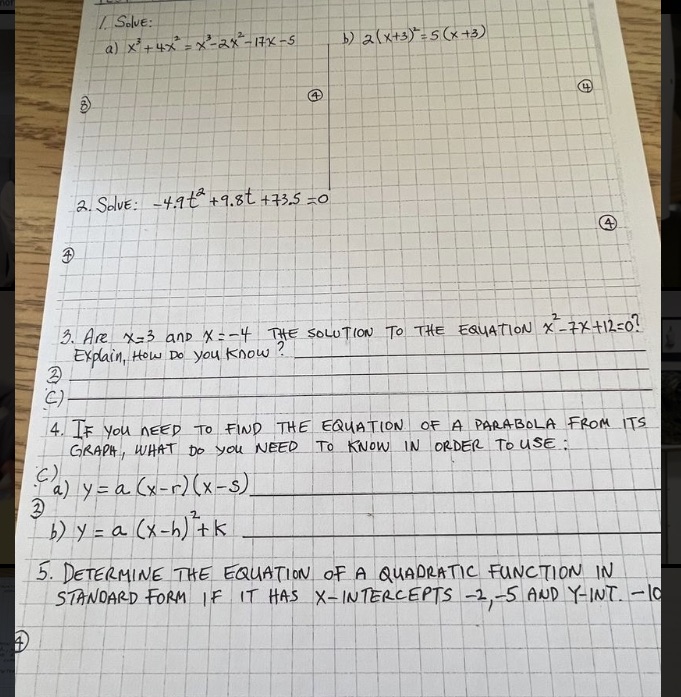 1. Solve:
a) x³ + 4x² = x³ - 2x² - 17x - 5
b) 2(x+3)² = 5(x+3)
④
④
2. Solve: -4.9t² + 9.8t + 73.5 = 0
④
④
3. Are x=3 and x=-4 THE SOLUTION TO THE EQUATION x² - 7x + 12 = 0?
Explain, How Do you Know?
②
C)
4. IF you nEED TO FIND THE EQUATION OF A PARABOLA FROM ITS
GRAPH, WHAT Do you NEED TO KNOW IN ORDER TO USE:
C)
a) y = a (x-r)(x-s)
b) y = a (x-h)² + k
5. DETERMINE THE EQUATION OF A QUADRATIC FUNCTION IN
STANDARD FORM IF IT HAS X-INTERCEPTS -2, -5 AND Y-INT. -10
④